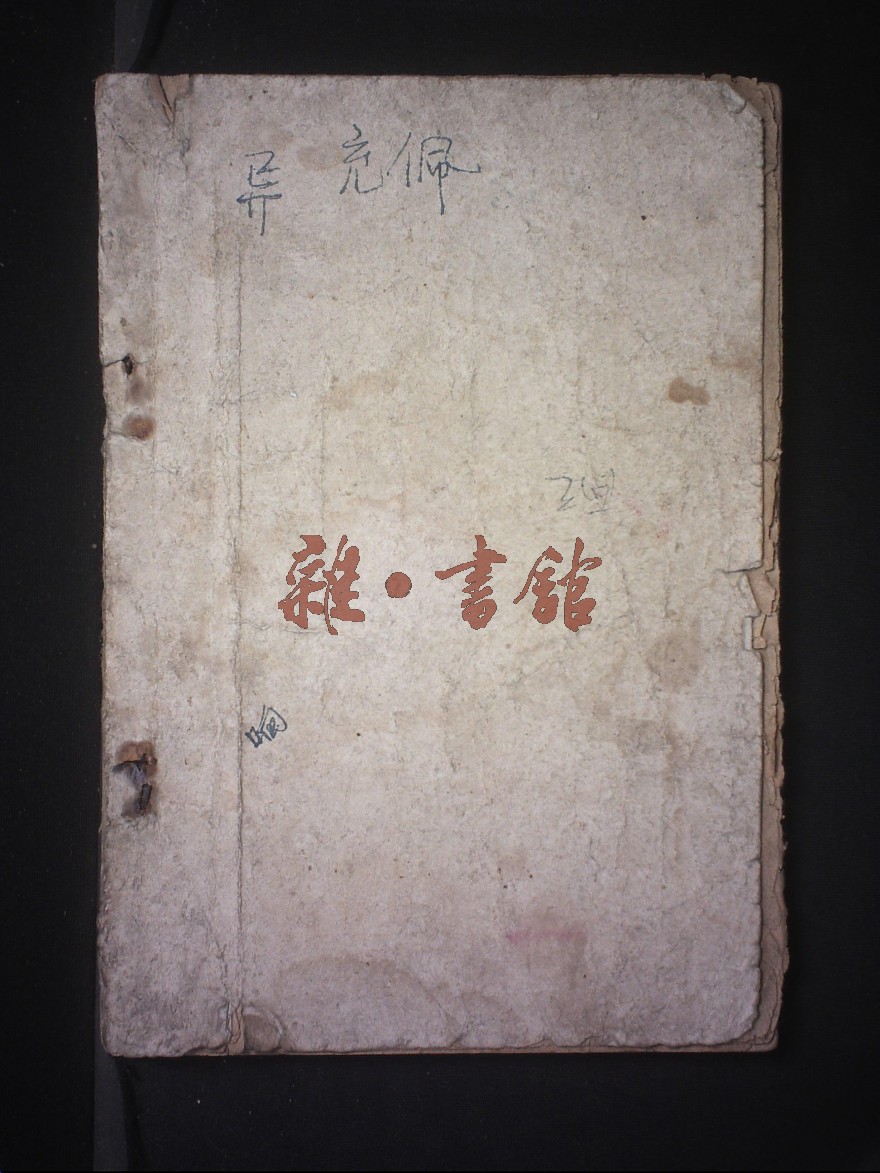 异 充佩
雜·書館